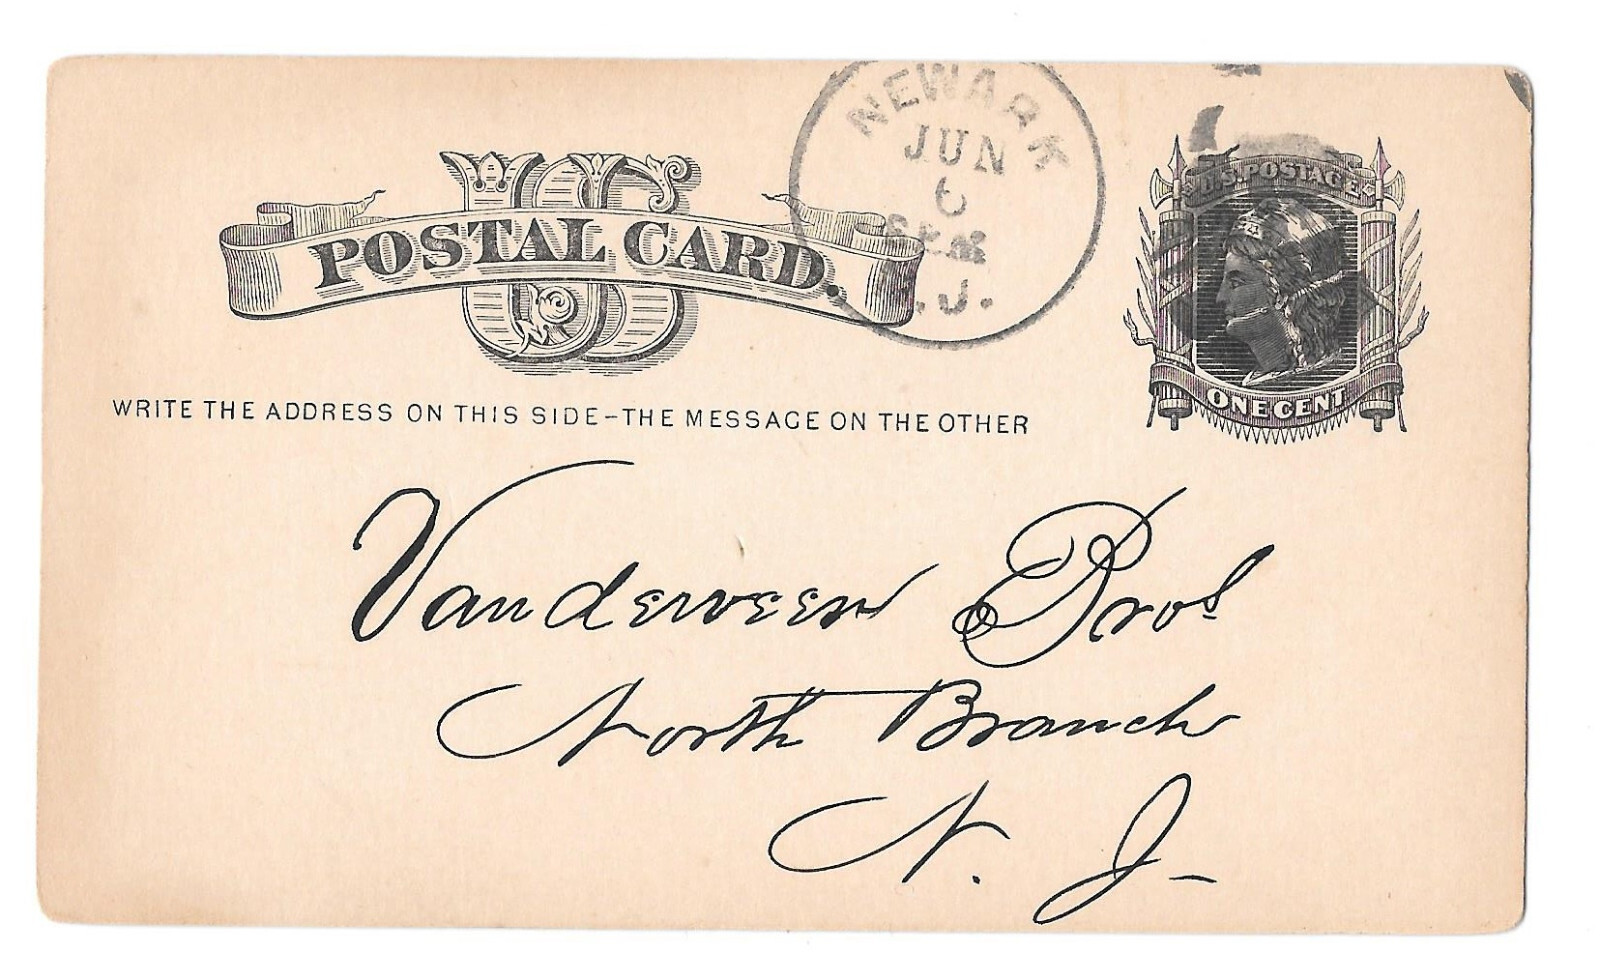 NEWARK
JUN
6
.J.
US
POSTAL CARD.
U.S. POSTAGE
ONE CENT
WRITE THE ADDRESS ON THIS SIDE–THE MESSAGE ON THE OTHER
Vanderveen Bros
North Branch
N. J–